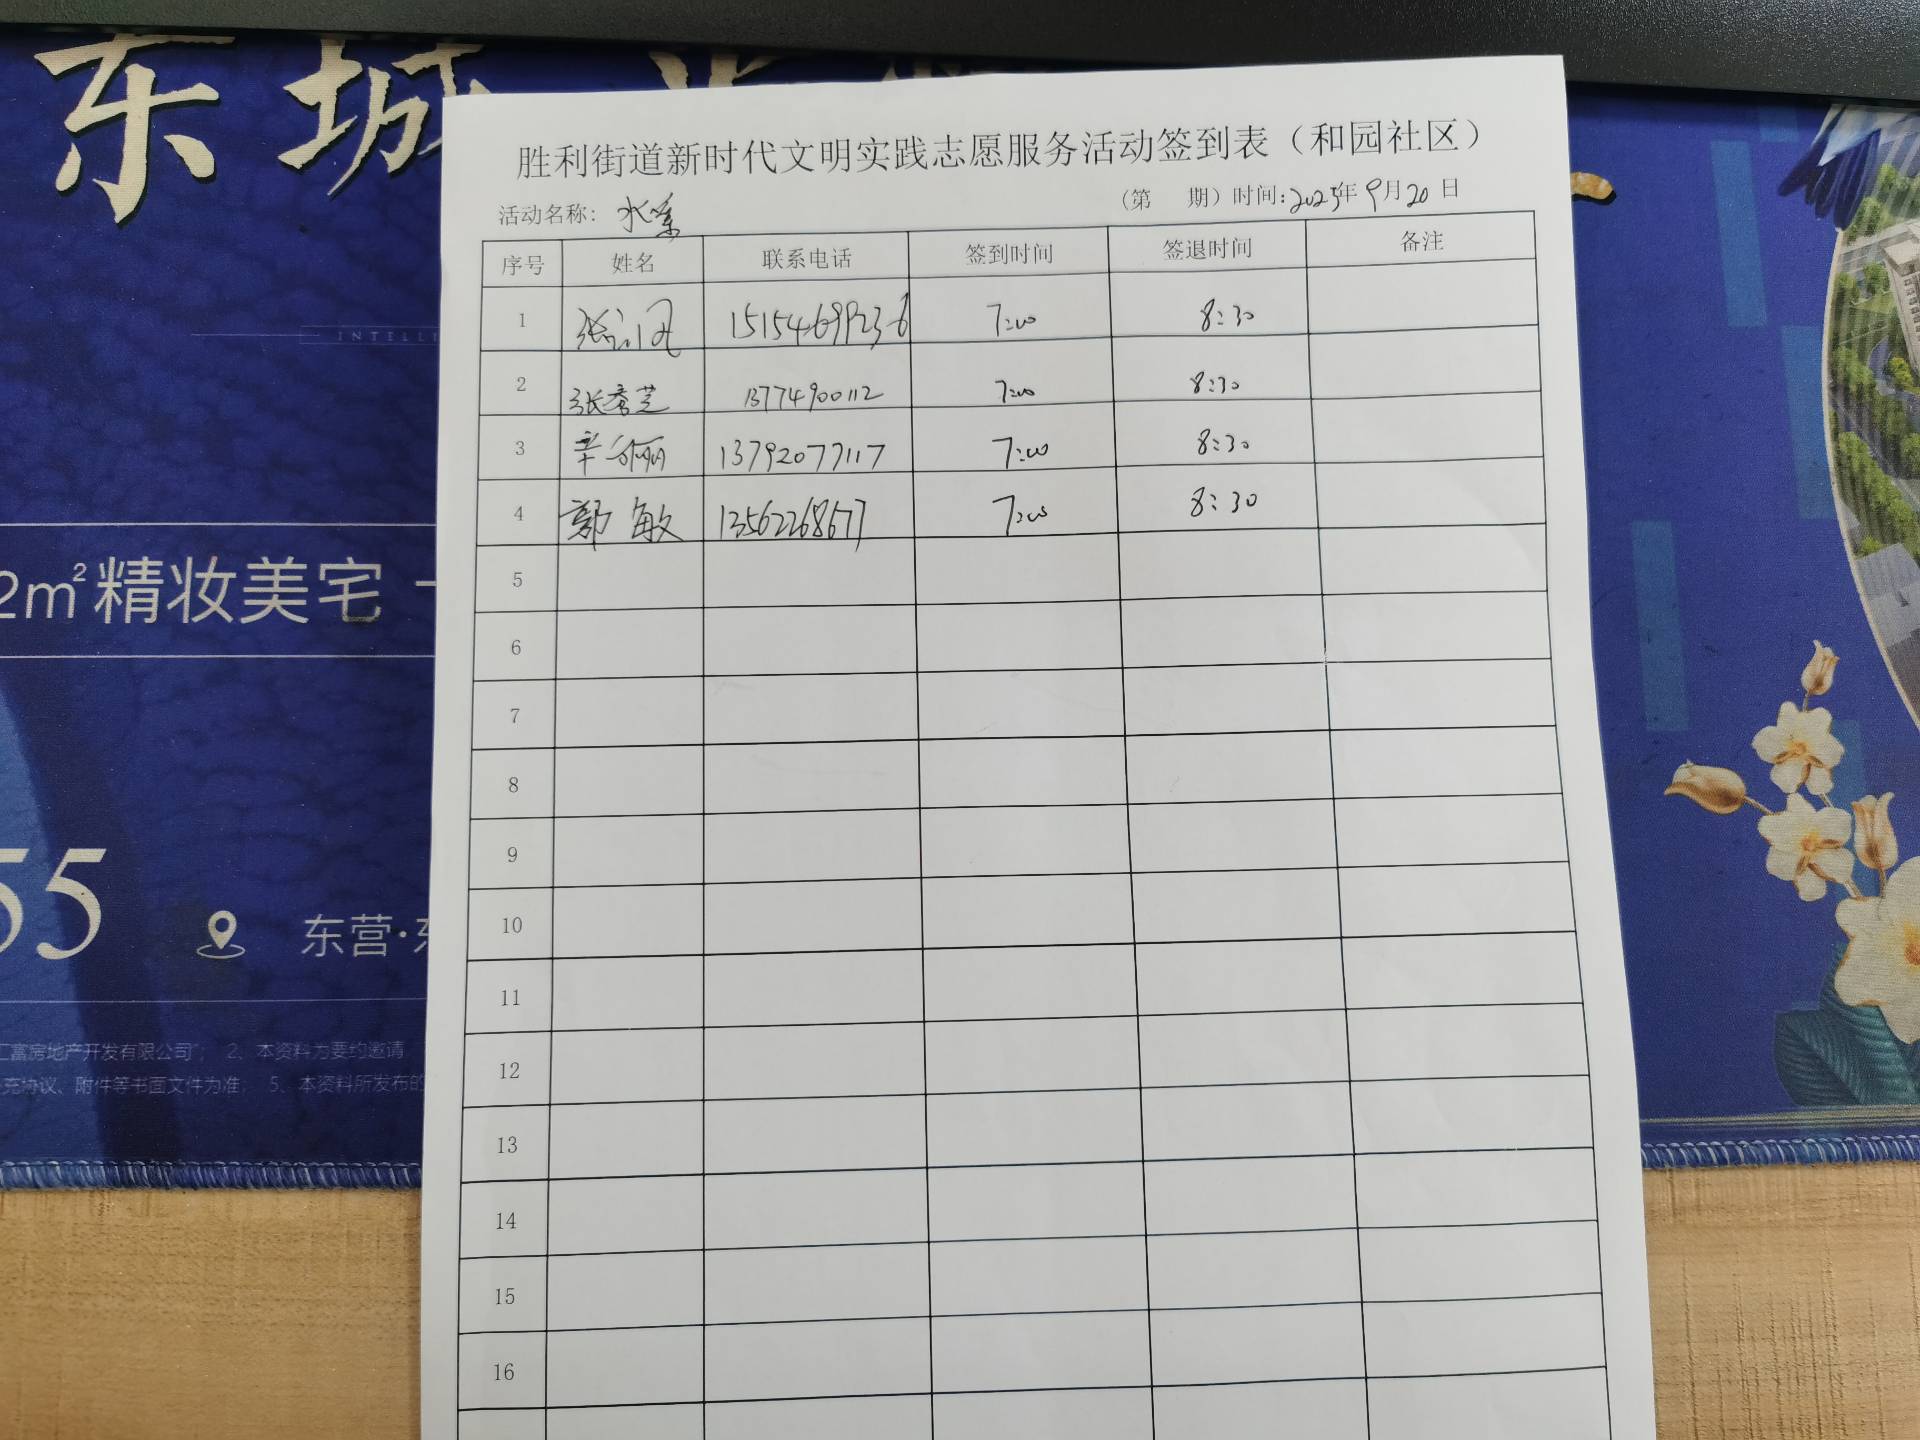 东城
INTELLI
2m²精妆美宅
55
东营·东
汇富房地产开发有限公司"； 2、本资料为要约邀请
充协议、附件等书面文件为准； 5、本资料所发布的
胜利街道新时代文明实践志愿服务活动签到表（和园社区）
活动名称： （第 期）时间：2025年9月20日
序号 姓名 联系电话 签到时间 签退时间 备注
1 张 凤 15154699236 7:00 8:30
2 张秀芝 13774900112 7:00 8:30
3 辛 丽 13792077117 7:00 8:30
4 郭敏 13562268677 7:00 8:30
5
6
7
8
9
10
11
12
13
14
15
16